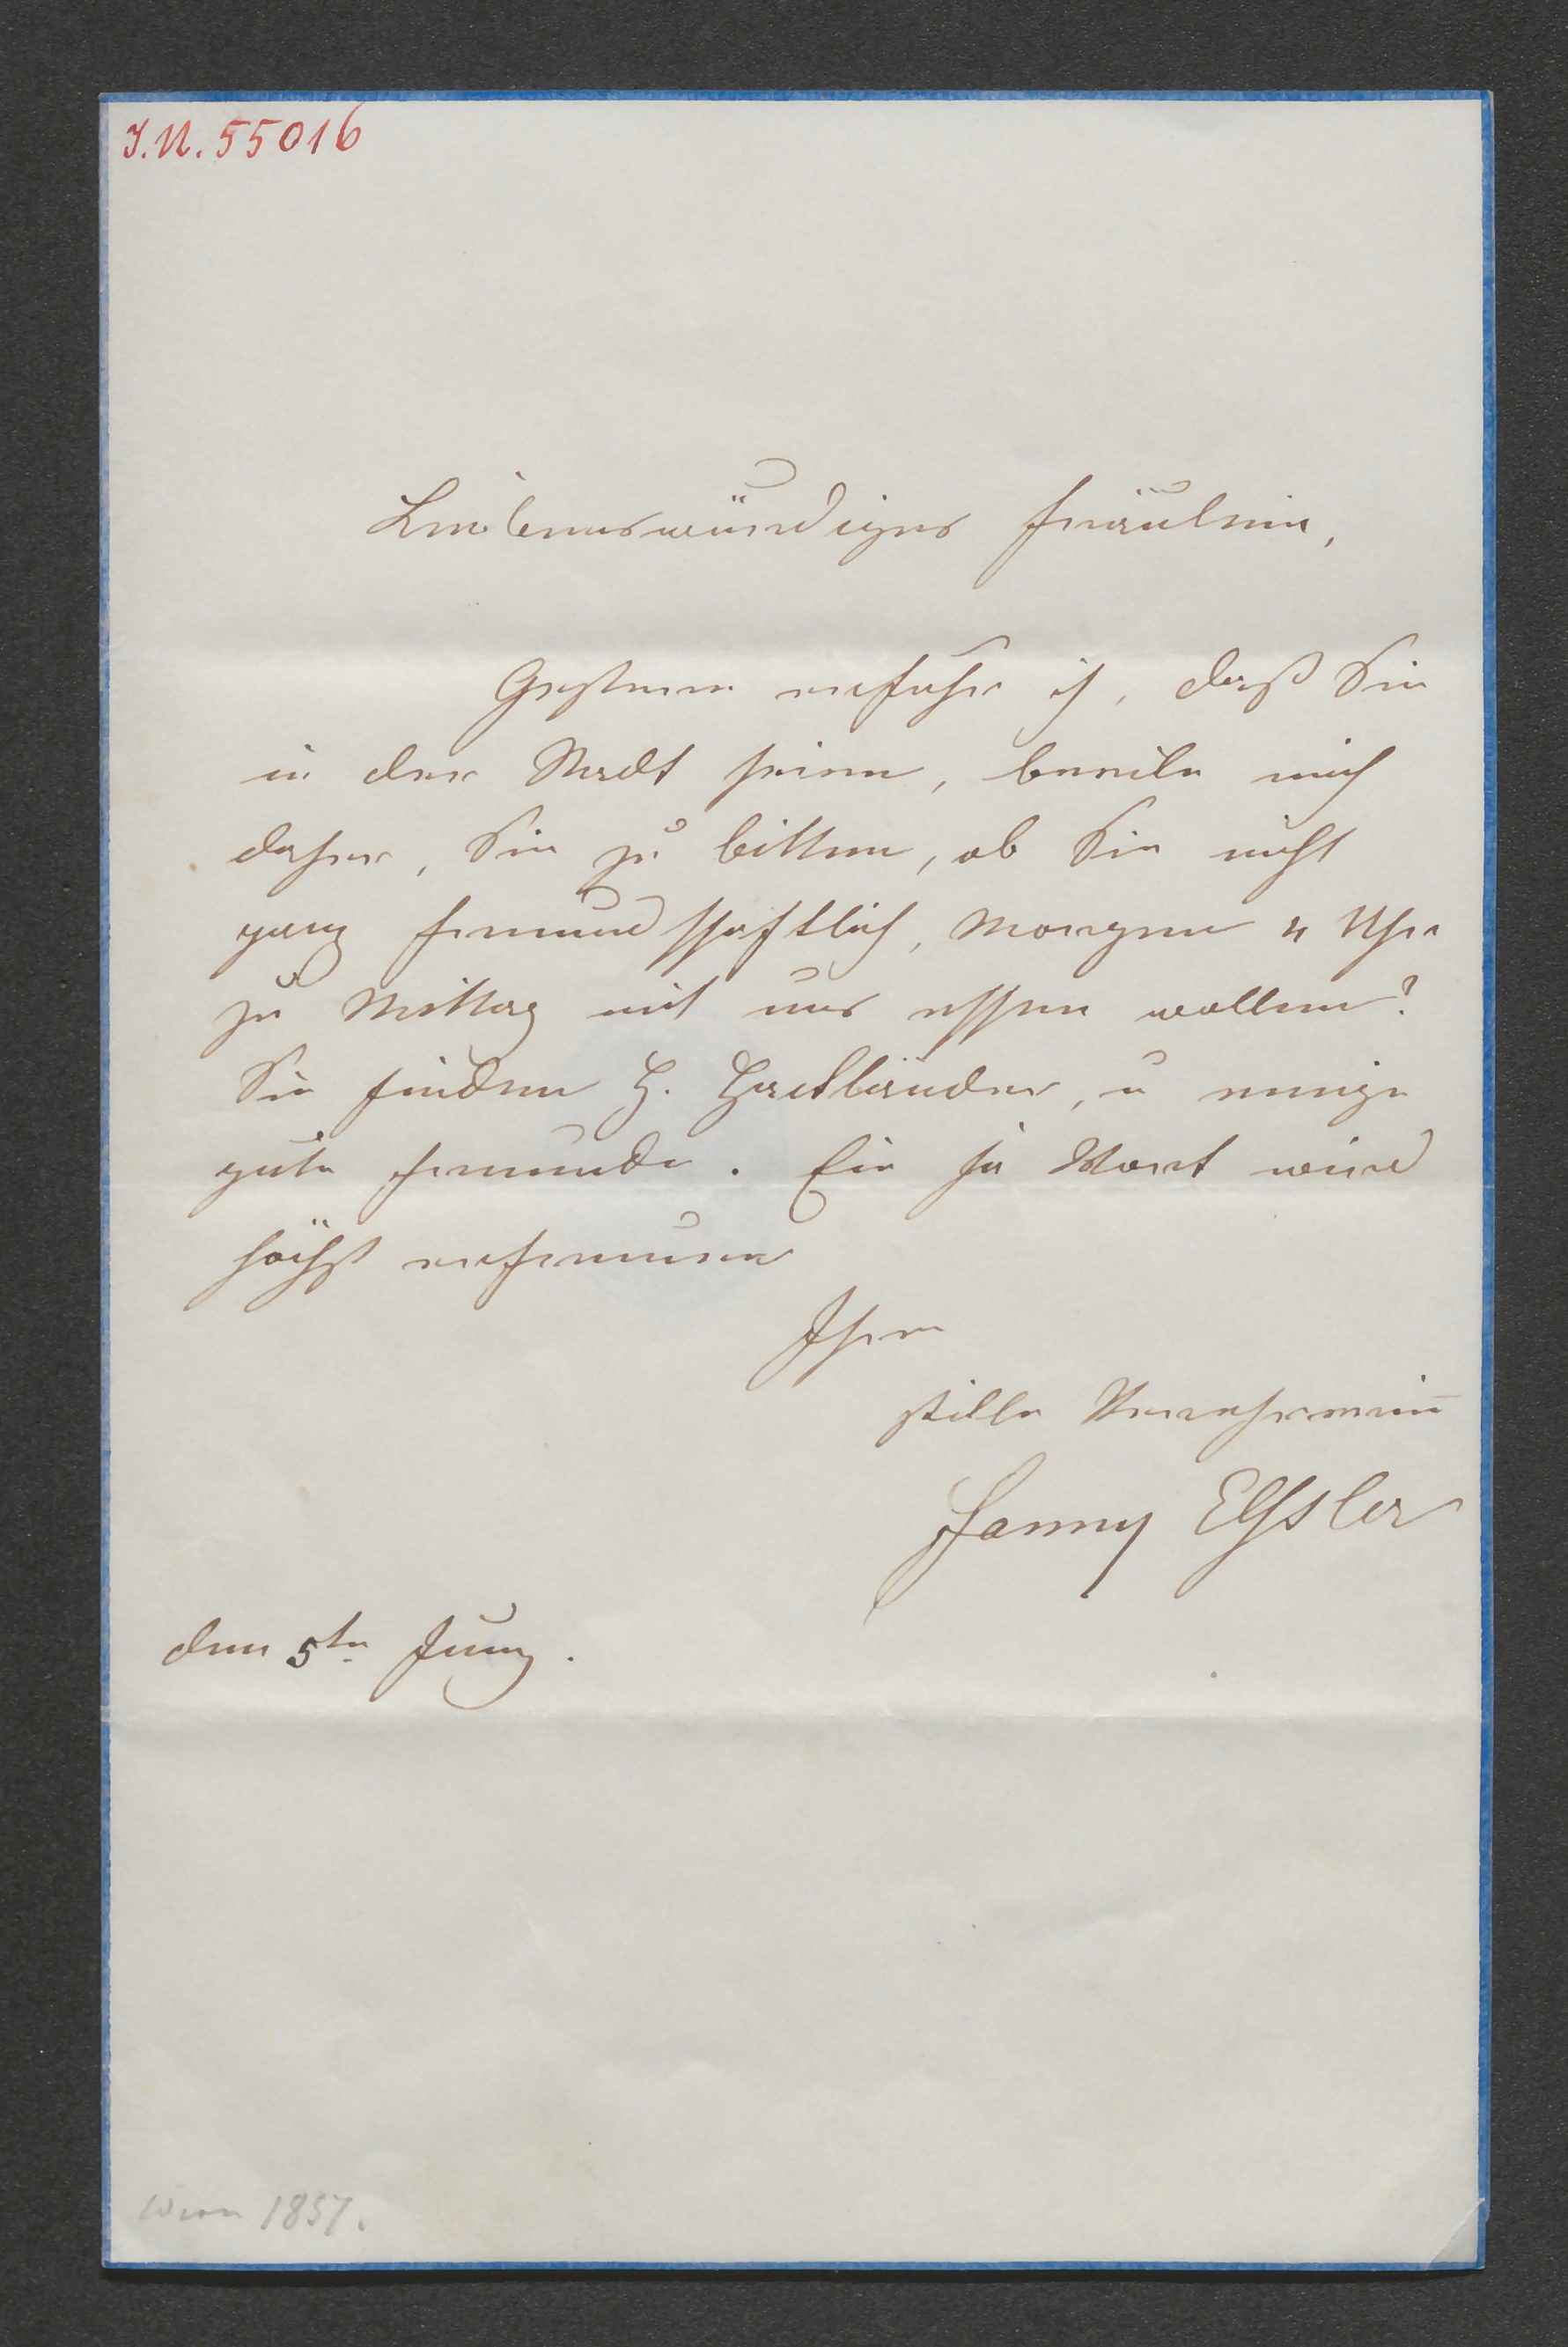 J.N. 55016
Liebenswürdiges Fräulein,
Gestern erfuhr ich, daß Sie
in der Stadt seien, beeile mich
daher, Sie zu bitten, ob Sie nicht
ganz freundschaftlich, Morgen 4 Uhr
zu Mittag mit uns essen wollen?
Sie finden H. Hackländer, u einige
gute Freunde. Ein ja Wort wird
höchst erfreuen
Ihre
stille Verehrerin
Fanny Elßler
den 5te Juny.
Wien 1857.